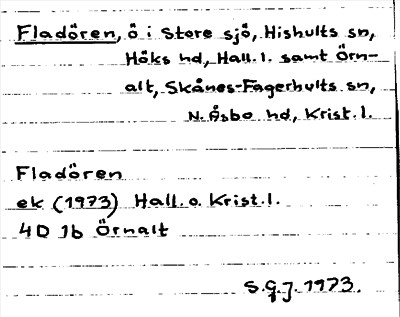 Fladören, ö i Store sjö, Hishults sn,
Höks hd, Hall. l. samt Örn-
alt, Skånes-Fagerhults sn,
N. Åsbo hd, Krist. l.
Fladören
ek (1973) Hall. o. Krist. l.
4D 1b Örnalt
S.G.J. 1973.